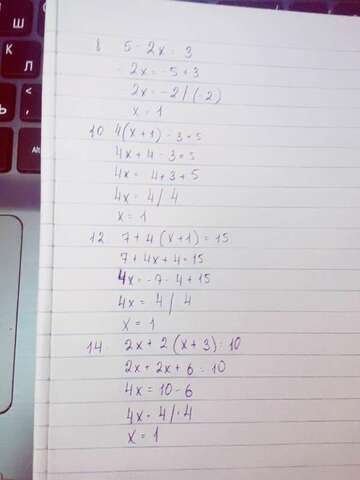 Ш
Ы
Alt
8 5 - 2x = 3
- 2x = -5 + 3
2x = -2 / (-2)
x = 1
10 4(x+1) - 3 = 5
4x + 4 - 3 = 5
4x = 4 + 3 + 5
4x = 4 / 4
x = 1
12. 7 + 4 (x+1) = 15
7 + 4x + 4 = 15
4x = -7 - 4 + 15
4x = 4 / 4
x = 1
14. 2x + 2 (x+3) = 10
2x + 2x + 6 = 10
4x = 10 - 6
4x = 4 / 4
x = 1